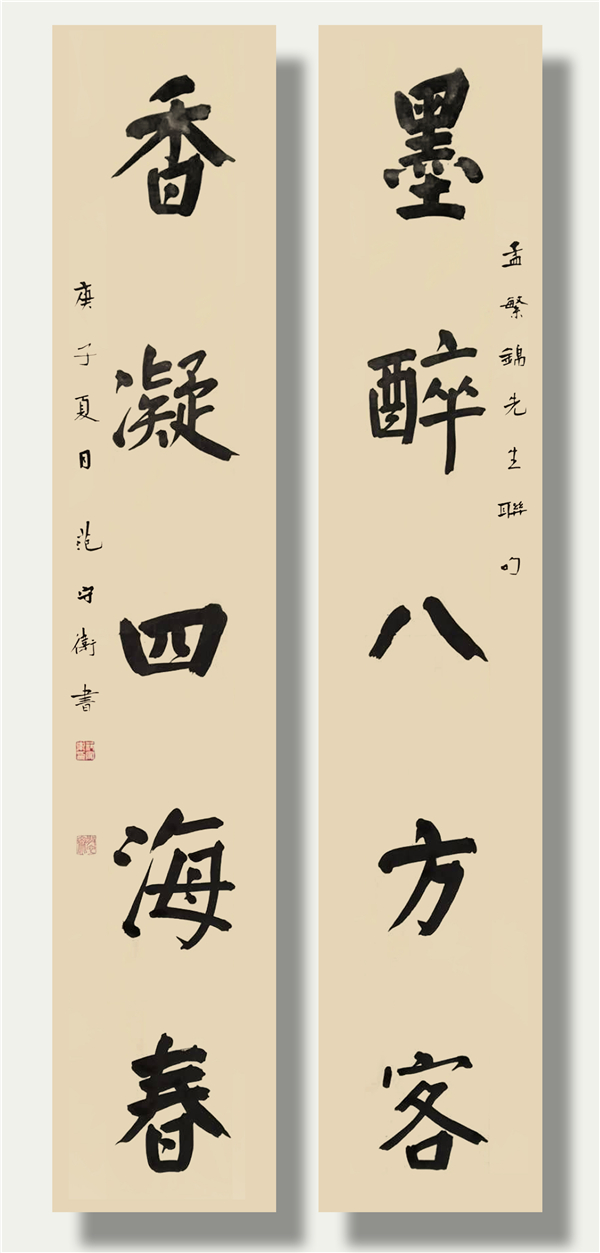 墨醉八方客
孟繁錦先生聯句
香凝四海春
庚子夏月 范守衛書